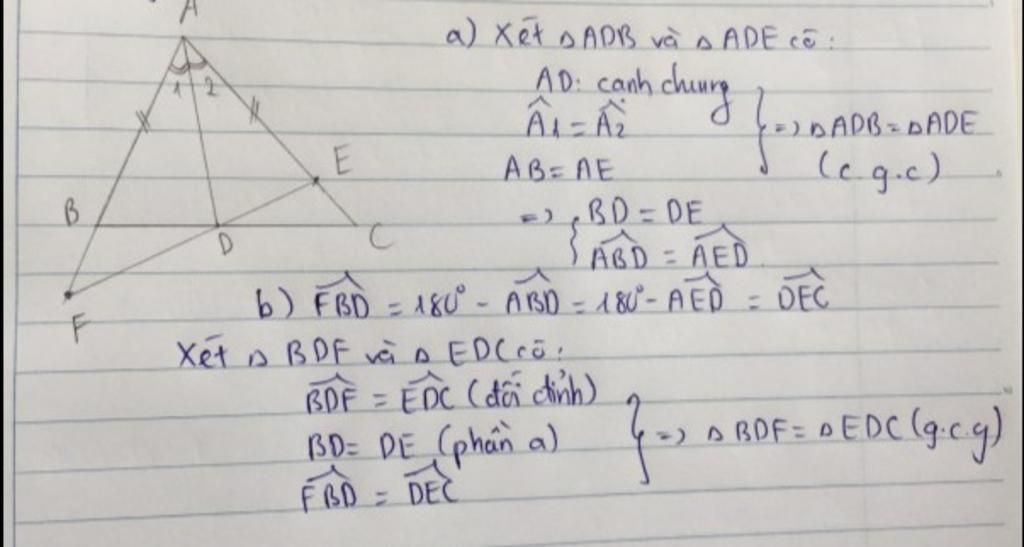 A
1 2
B
E
D
C
F
a) Xét ΔADB và ΔADE có:
AD: cạnh chung
Â1 = Â2
AB = AE
} => ΔADB = ΔADE
(c.g.c)
=> { BD = DE
ABD̂ = AED̂
b) FBD̂ = 180° - ABD̂ = 180° - AED̂ = DEĈ
Xét Δ BDF và Δ EDC có:
BDF̂ = EDĈ (đối đỉnh)
BD = DE (phần a)
FBD̂ = DEĈ
} => Δ BDF = Δ EDC (g.c.g)